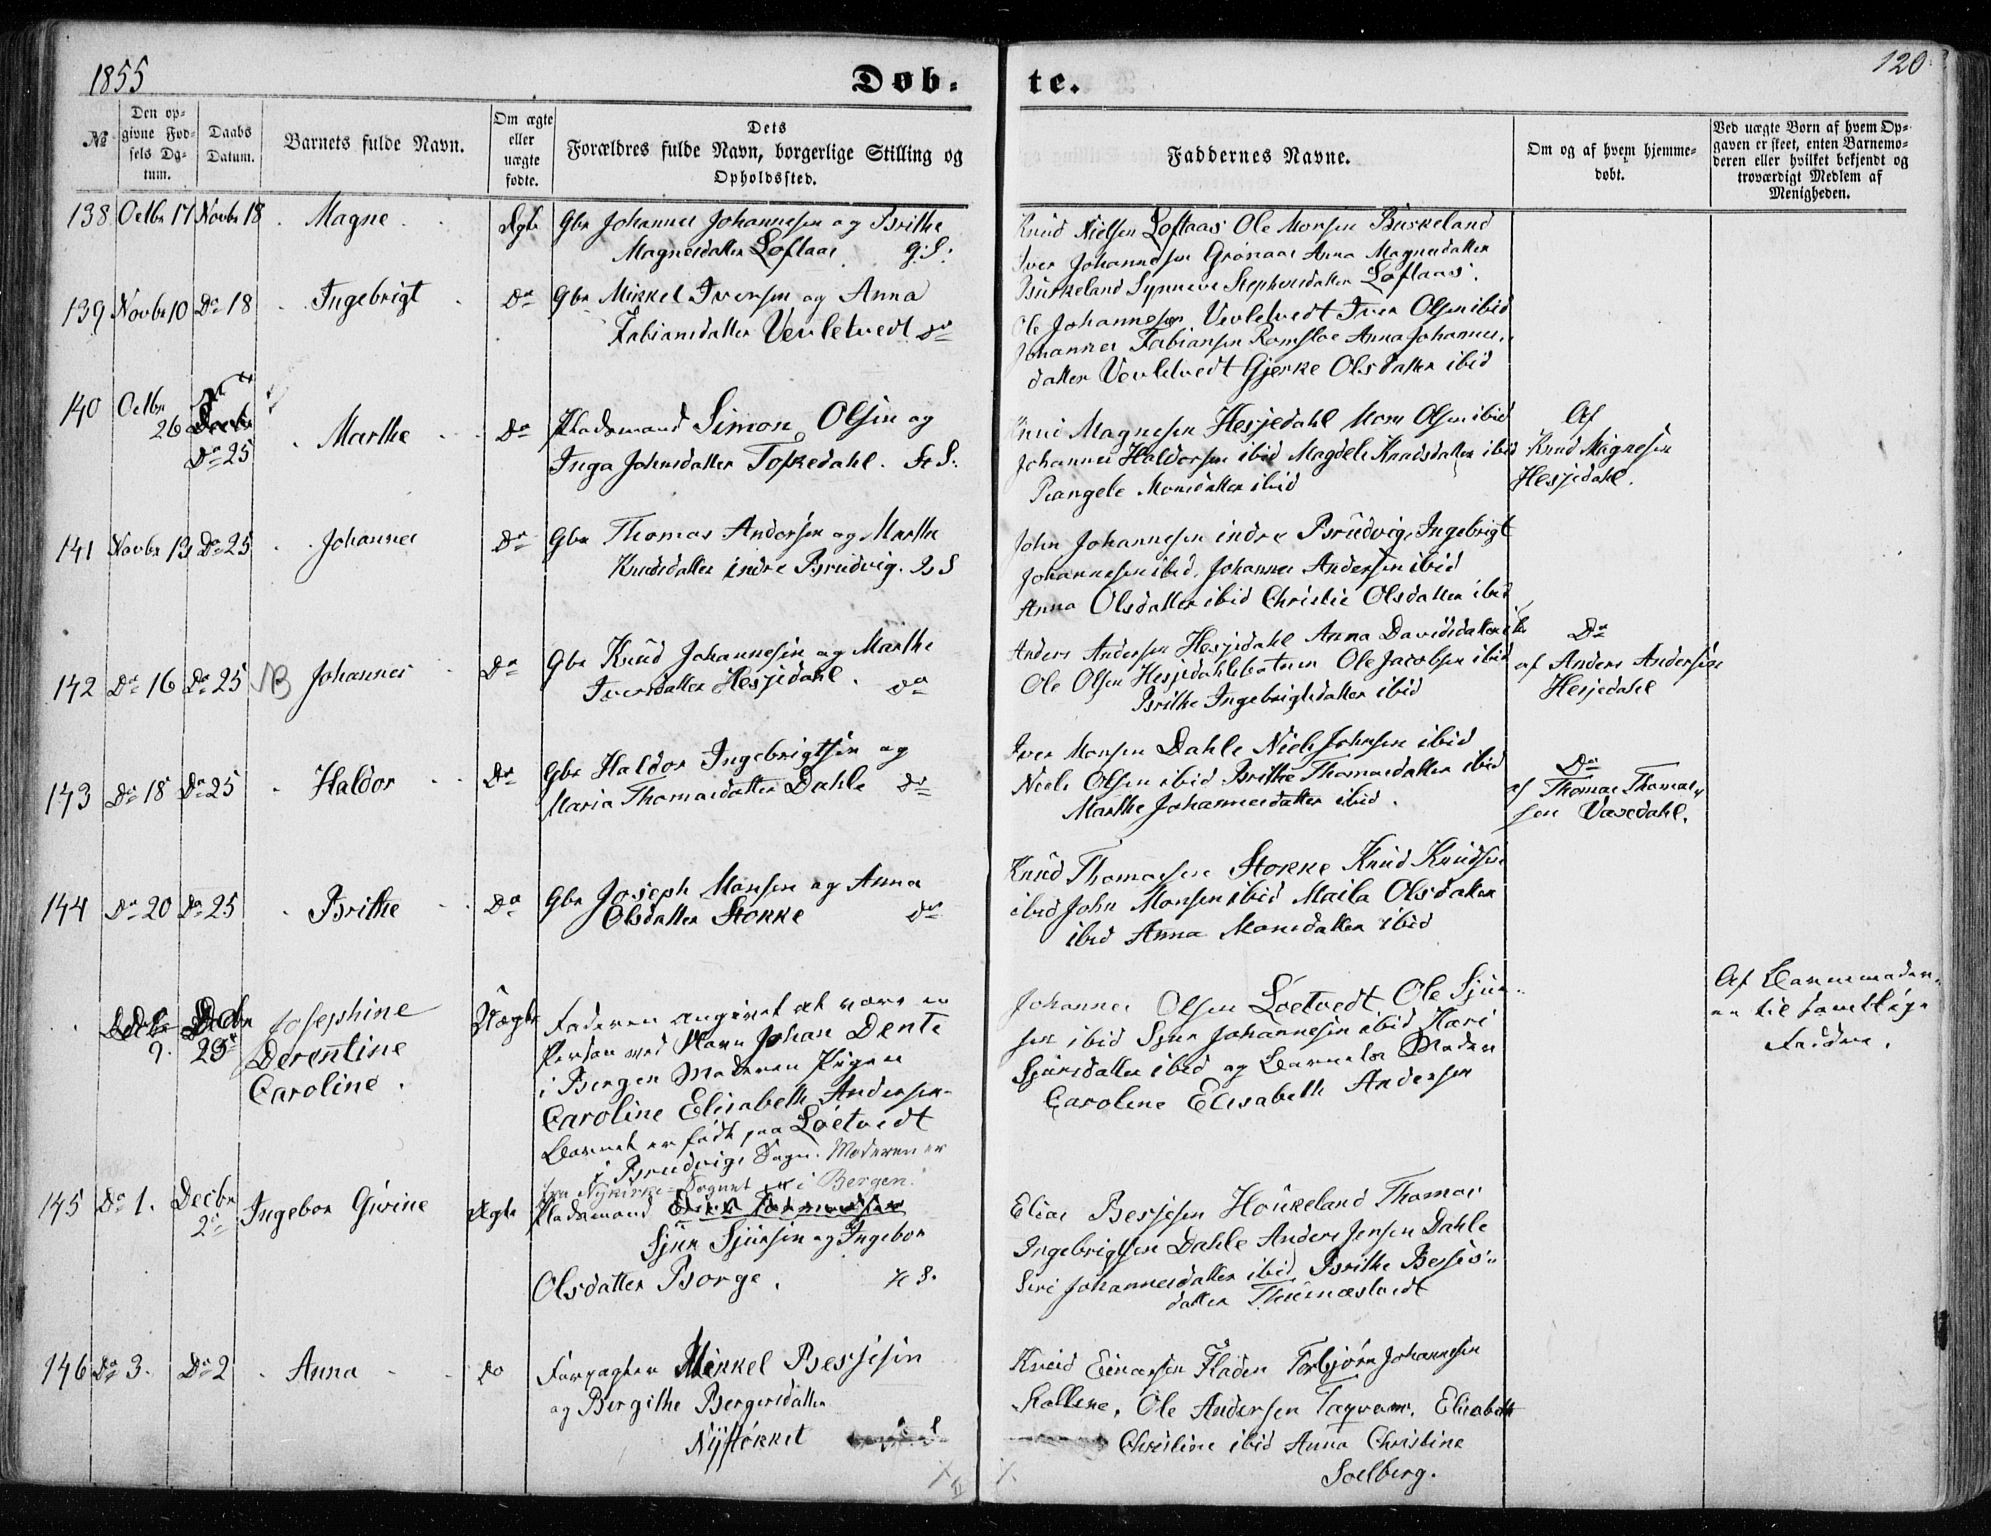 1855
Døb-
te.
120
№
Den op-
givne Fød-
sels Da-
tum.
Daabs
Datum.
Barnets fulde Navn.
Om ægte
eller
uægte
fødte.
Dets
Forældres fulde Navn, borgerlige Stilling og
Opholdssted.
Faddernes Navne.
Om og af hvem hjemme-
døbt.
Ved uægte Børn af hvem Op-
gaven er skeet, enten Barnemo-
deren eller hvilket bekjendt og
troværdigt Medlem af
Menigheden.
138 Octbr 17 Novbr 18 Magne Ægte Gbr Johannes Johannesen og Brithe
Magnesdatter Loftaas G: S:
Knud Nielsen Loftaas Ole Monsen Burkeland
Iver Johannesen Grønaas Anna Magnesdatter
Burkeland Synneve Stephensdatter Loftaas.
139 Novbr 10 Do 18 Ingebrigt Do Gbr Mikkel Iversen og Anna
Fabiansdatter Vevletvedt Do
Ole Johannesen Vevletvedt Iver Olsen ibid
Johannes Fabiansen Romsloe Anna Johannes-
datter Vevletvedt Gjerke Olsdatter ibid
140 Octbr
26
Do 25
Marthe Do Pladsmand Simon Olsen og
Inga Johnsdatter Toskedahl. S:
Knud Magnesen Hesjedahl Mons Olsen ibid
Johannes Haldorsen ibid Magdeli Knudsdatter ibid
Rangele Monsdatter ibid
Af
Knud Magnesen
Hesjedahl.
141 Novbr 13 Do 25 Johannes Do Gbr Thomas Andersen og Marthe
Knudsdatter indre Brudvig. S
John Johannesen indre Brudvig, Ingebrigt
Johannesen ibid, Johannes Andersen ibid
Anna Olsdatter ibid Christie Olsdatter ibid
142 Do 16 Do 25 NB Johannes Do Gbr Knud Johannesen og Marthe
Iversdatter Hesjedahl. Do
Anders Andersen Hesjedahl Anna Davidsdatter ib
Ole Olsen Hesjedahlsbotnen Ole Jacobsen ibid
Brithe Ingebrigtsdatter ibid
Do
af Anders Andersen
Hesjedahl
143 Do 18 Do 25 Haldor Do Gbr Haldor Ingebrigtsen og
Maria Thomasdatter Dahle Do
Iver Monsen Dahle Niels Johnsen ibid
Niels Olsen ibid Brithe Thomasdatter ibid
Marthe Johannesdatter ibid.
Do
af Thomas Thomas-
sen Vaxedahl.
144 Do 20 Do 25 Brithe Do Gbr Joseph Monsen og Anna
Olsdatter Stokke Do
Knud Thomassen Stokke Knud Knudsen
ibid John Monsen ibid Maila Olsdatter
ibid Anna Monsdatter ibid
9. 29 Josephine
Derentine
Caroline.
Uægte Faderen angivet at være en
Person ved Navn Johan Dente
i Bergen Moderen Pigen
Caroline Elisabeth Andersen
Barnet er født paa Loetvedt
i Brudvigs Sogn. Moderen er
fra Nykirke-Sognet i Bergen.
Johannes Olsen Loetvedt Ole Sjur-
sen ibid Sjur Johannesen ibid Kari
Sjursdatter ibid og Barnets Moder
Caroline Elisabeth Andersen
Af Barnemoder-
en til samtlige
Faddere.
145 Do 1. Decbr
2 Ingebor Gurine Ægte Pladsmand
Sjur Sjursen og Ingebor
Olsdatter Borge. S.
Elias Bersesen Houkeland Thomas
Ingebrigtsen Dahle Anders Jensen Dahle
Siri Johannesdatter ibid, Brithe Berses-
datter
146 Do 3. Do 2 Anna Do Forpagter Mikkel Bersesen
og Bergithe Bergersdatter
Nystøkket
Knud Einarsen Fladen Torbjørn Johannesen
Kallene, Ole Andersen Taqvam, Elisabeth
Christine ibid Anna Christine
Soelberg.